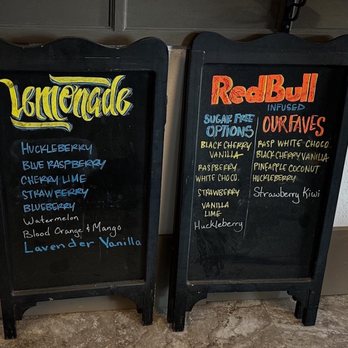 Lemonade
Huckleberry
Blue Raspberry
Cherry Lime
Strawberry
Blueberry
Watermelon
Blood Orange & Mango
Lavender Vanilla
RedBull
INFUSED
SUGAR FREE
OPTIONS
BLACK CHERRY
VANILLA
RASPBERRY
WHITE CHOCO.
STRAWBERRY
VANILLA
LIME
Huckleberry
OUR FAVES
RASP WHITE CHOCO
BLACK CHERRY VANILLA
PINEAPPLE COCONUT
HUCKLEBERRY
Strawberry Kiwi